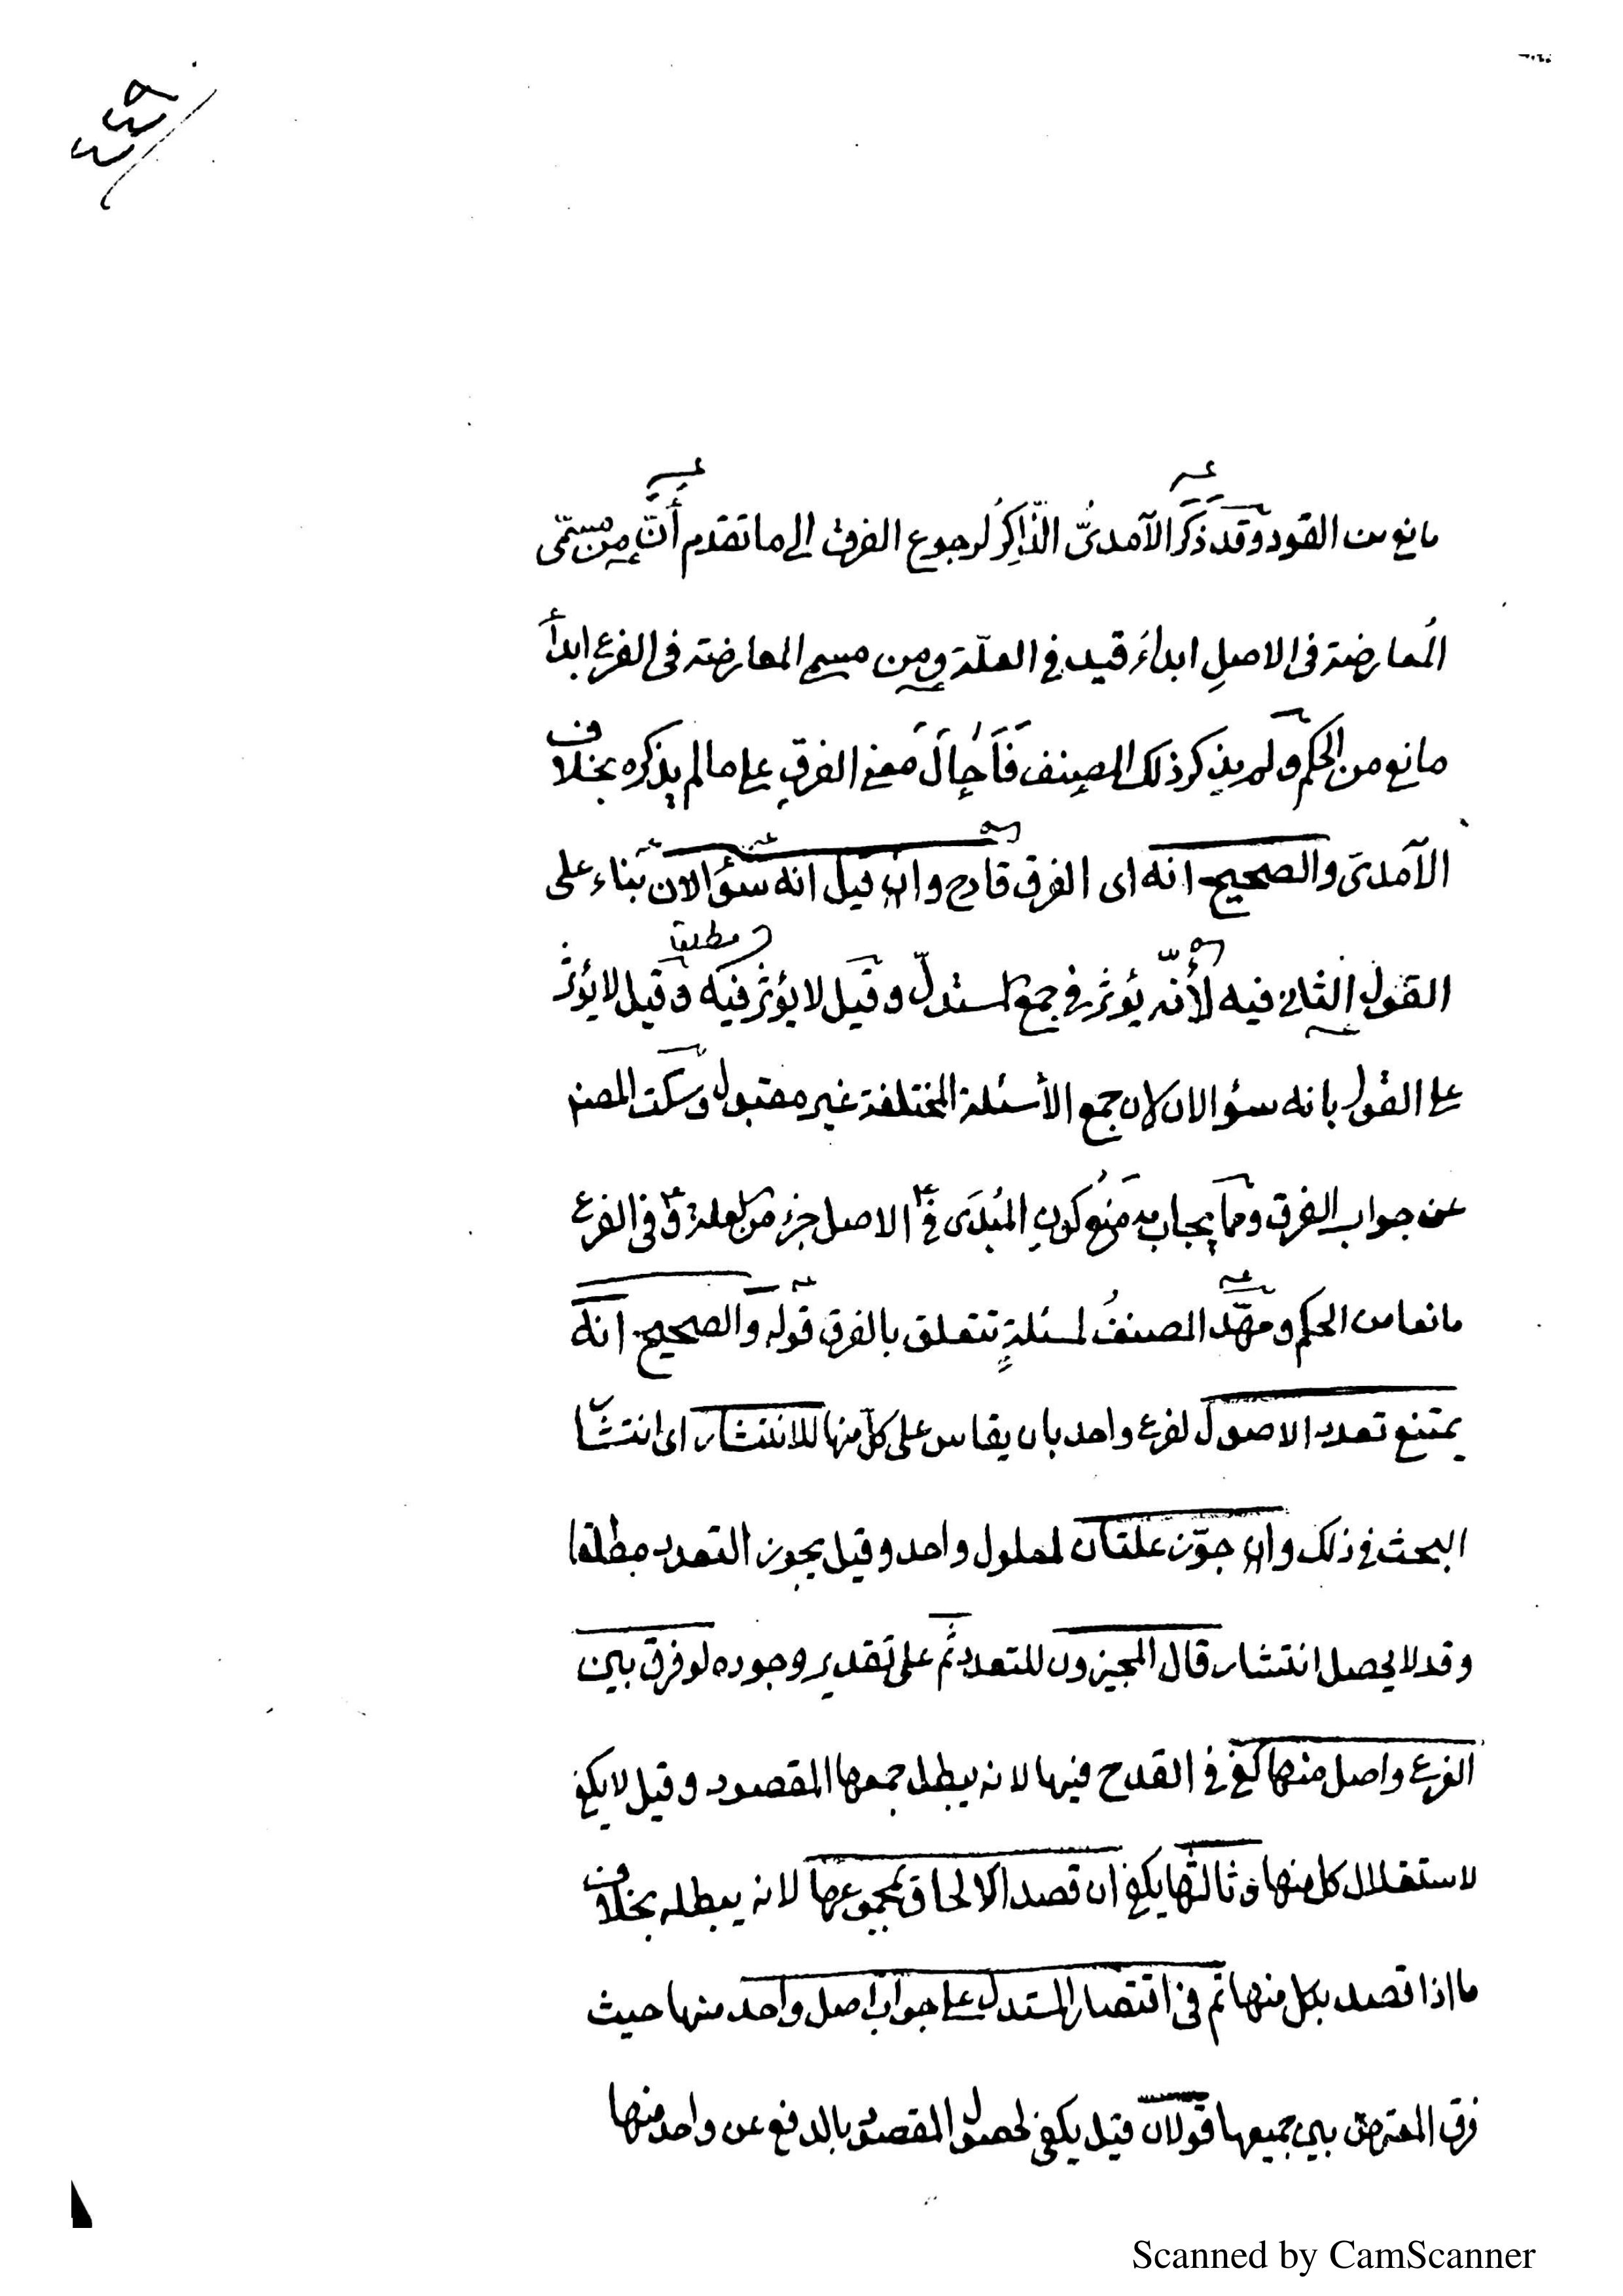 مانع من القود وقد ذَكَرَ الآمديُّ الذّاكِرُ لرجوع الفرق الى ما تقدم أنّ من مسمّى
المُعارضة فى الاصلِ ابداءَ قيد فى العلّة ومن مسمى المعارضة فى الفرع ابداءَ
مانع من الحكم ولم يذكر ذلك المصنف فَأَحالَ معنى الفرق على ما لم يذكره بخلاف
الآمدىّ والصحيح انه اى الفرق قادح وان قيل انه سؤالان بناء على
القول الثانى فيه لأنّه يؤثر فى جمع المستدلّ وقيل لا يؤثر فيه مطلقا وقيل لا يؤثر
على القول بانه سؤالان لان جمع الأسئلة المختلفة غير مقبول وسكت المصنف
عن جواب الفرق ومما يجاب به مَنْعُ كون المُبْدَى فى الاصل جزء من العلة وفى الفرع
مانعا من الحكم ومهّد المصنفُ لمسئلةٍ تتعلق بالفرق قوله والصحيح انه
يمتنع تعدد الاصول لفرع واحد بان يقاس على كلّ منها للانتشار اى انتشار
البحث فى ذلك وان جوّز علتان لمعلول واحد وقيل يجوز التعدد مطلقا
وقد لا يحصل انتشار قال المجيزون للتعدد ثم على تقدير وجوده لو فرق بين
الفرع واصل منها كفى فى القدح فيها لانه يبطل جمعها المقصود وقيل لا يكفى
لاستقلال كل منها وثالثها يكفى ان قصد الالحاق بمجموعها لانه يبطله بخلاف
ما اذا قصد بكل منها ثم فى اقتصار المستدل على جواب اصل واحد منها حيث
فرق المعترض بين جميعها قولان قيل يكفى لحصول المقصود بالدفع عن واحد منها
Scanned by CamScanner